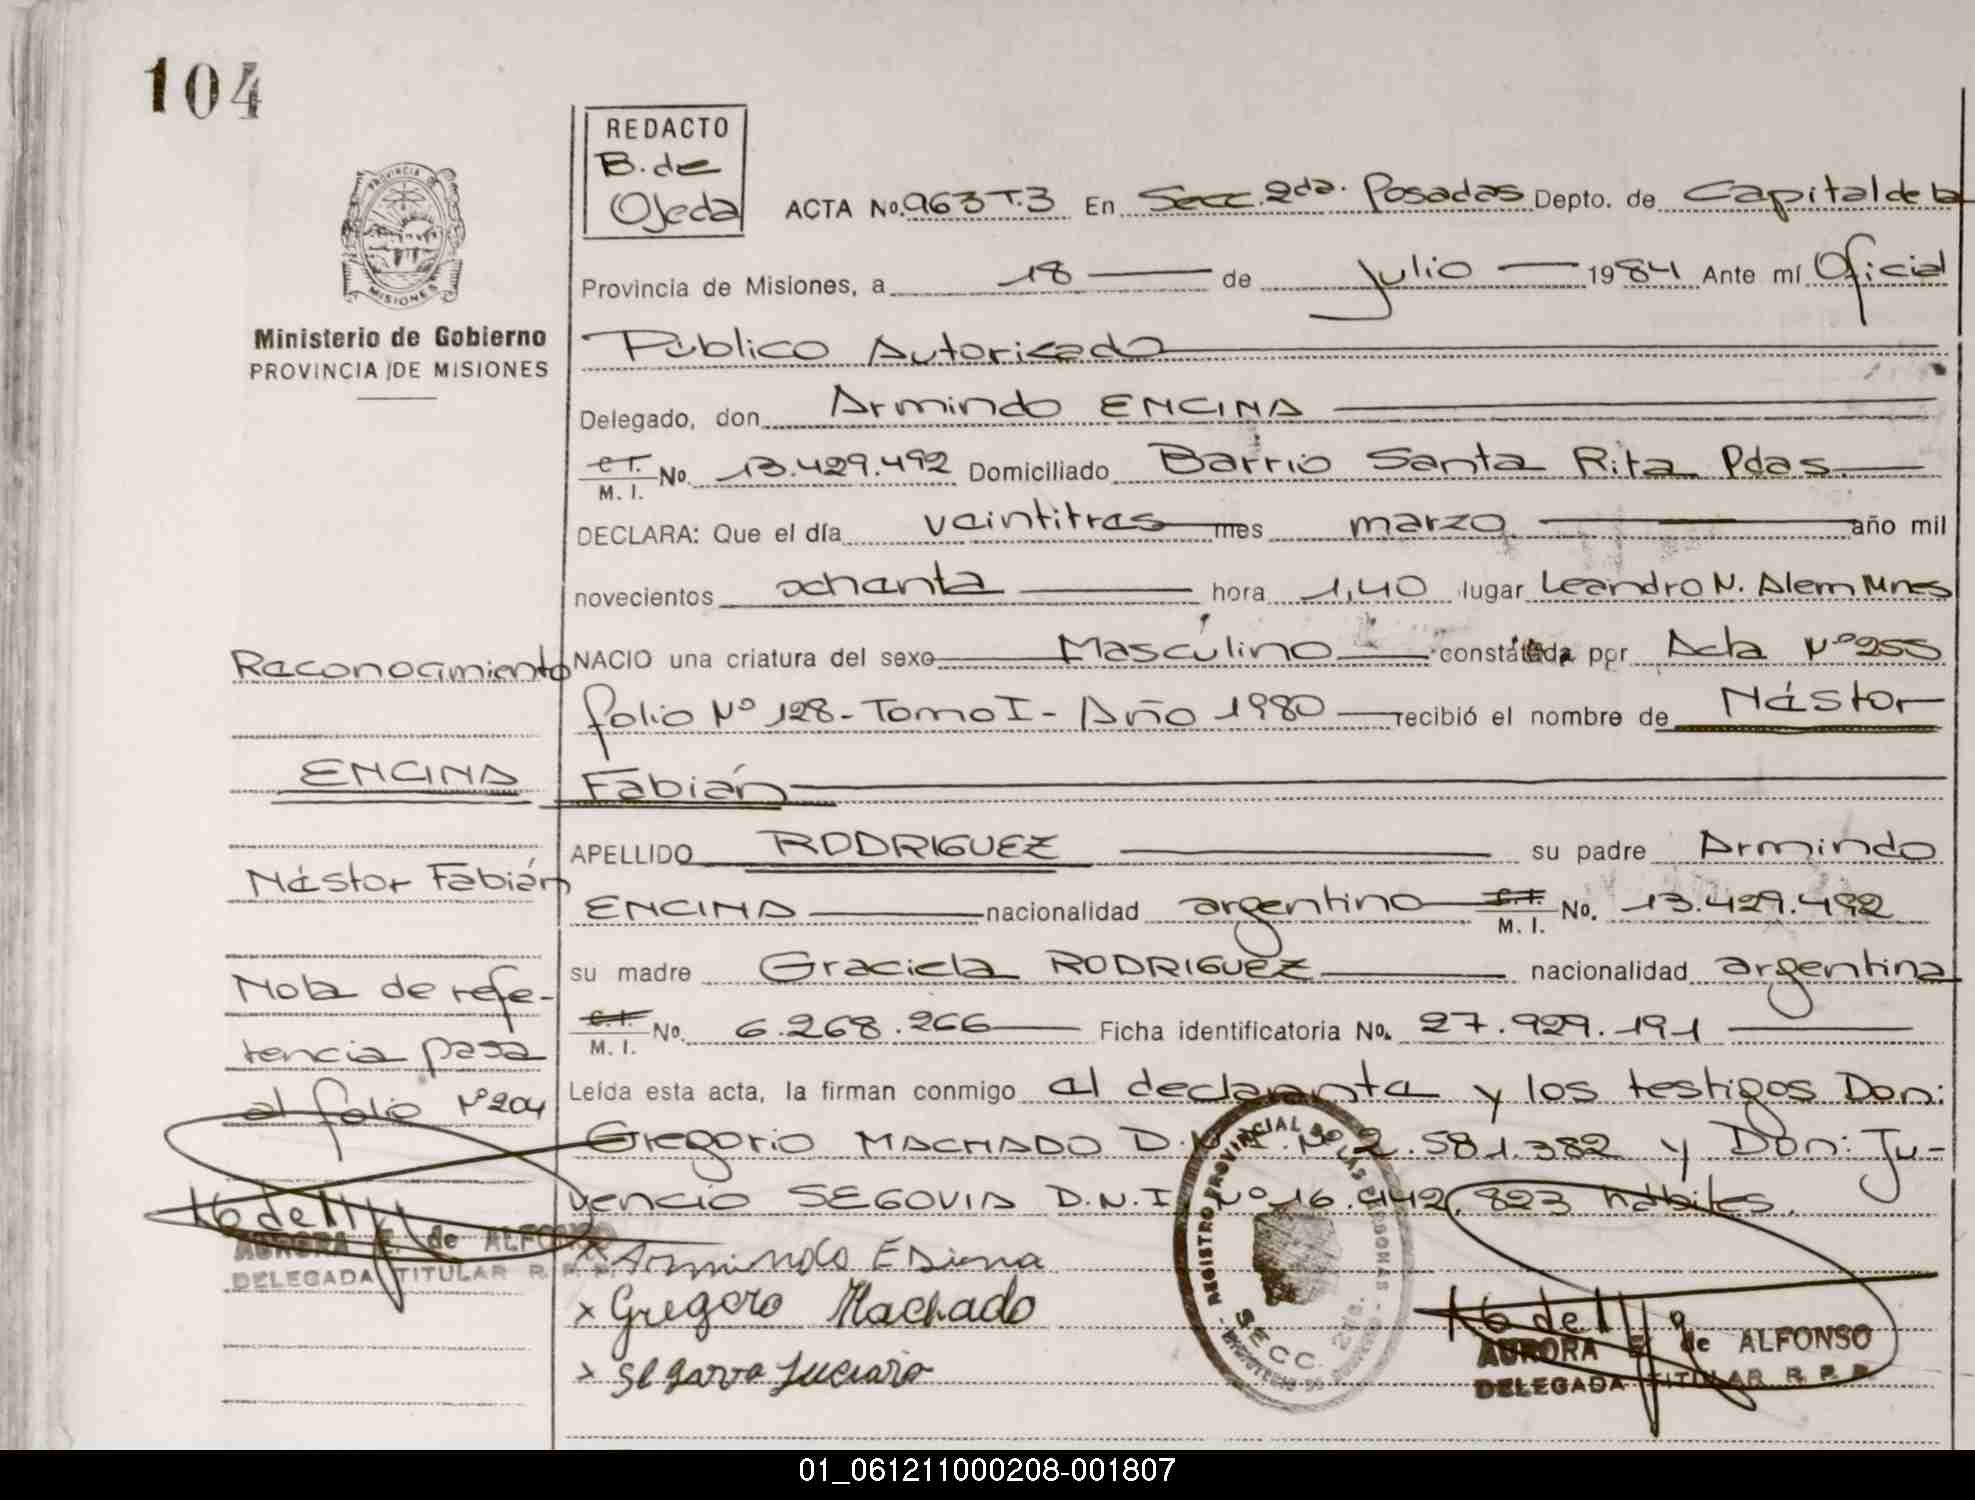 104
REDACTO
B. de
Ojeda
ACTA No. 963 T.3 En Secc. 2da. Posadas Depto. de Capital de la
PROVINCIA DE
MISIONES
Ministerio de Gobierno
PROVINCIA DE MISIONES
Provincia de Misiones, a 18 de Julio 1984 Ante mí Oficial
Público Autorizado
Delegado, don Armindo ENCINA
C.I. M. I. No. 13.429.492 Domiciliado Barrio Santa Rita Pdas.
DECLARA: Que el día veintitres mes marzo año mil
novecientos ochenta hora 1,40 lugar Leandro N. Alem Mnes
NACIO una criatura del sexo Masculino constatada por Acta Nº 255
folio Nº 128 - Tomo I - Año 1980 recibió el nombre de Néstor
Fabián
APELLIDO RODRIGUEZ su padre Armindo
ENCINA nacionalidad argentino C.I. M. I. No. 13.429.492
su madre Graciela RODRIGUEZ nacionalidad argentina
C.I. M. I. No. 6.268.266 Ficha identificatoria No. 27.929.191
Leída esta acta, la firman conmigo el declarante y los testigos Don:
Gregorio MACHADO D.N.I. Nº 2.581.382 y Don: Ju-
vencio SEGOVIA D.N.I. Nº 16.442.823 hábiles.
Reconocimiento
ENCINA
Néstor Fabián
Nota de refe-
rencia pasa
al folio Nº 204
AURORA E. de ALFONSO
DELEGADA TITULAR R. P. P.
x Armindo
x Gregoro Machado
x
REGISTRO PROVINCIAL DE LAS PERSONAS
SECC. 2da.
AURORA E. de ALFONSO
DELEGADA TITULAR R. P. P.
01_061211000208-001807